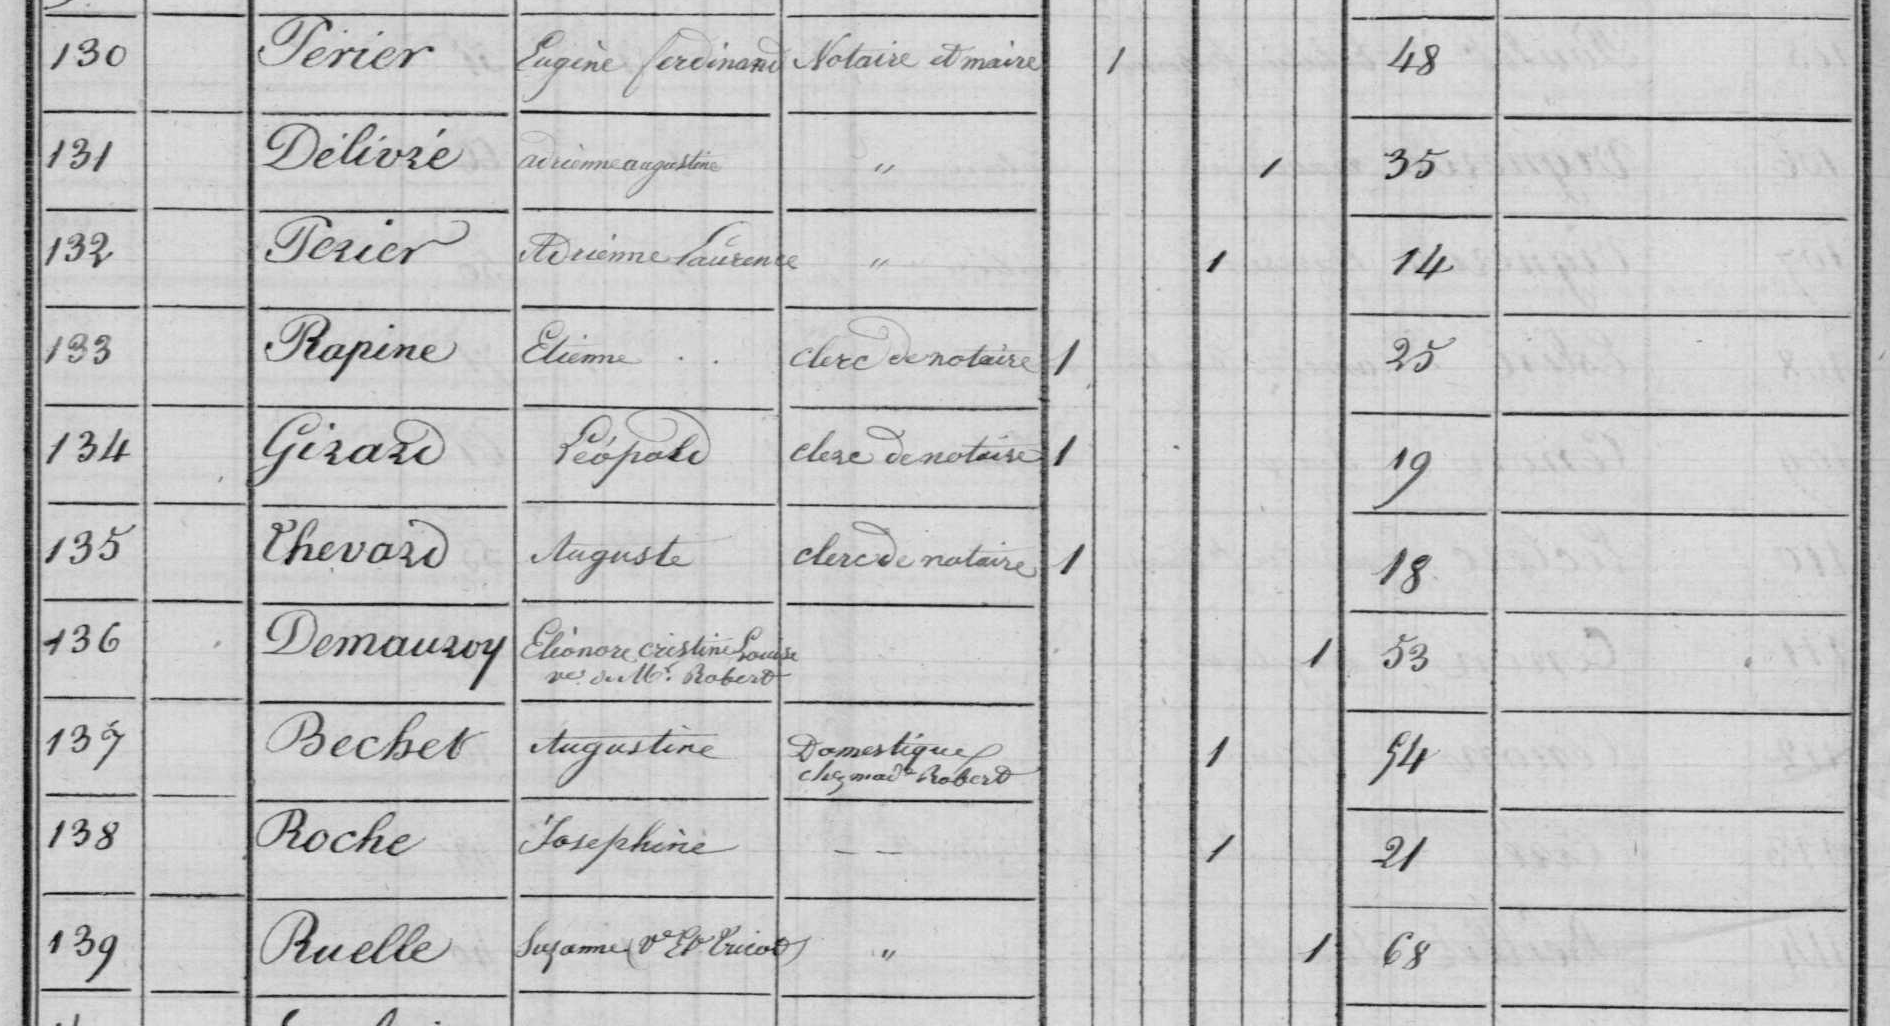 130 Périer Eugène ferdinand Notaire et maire 1 48
131 Délivré adrienne augustine " 1 35
132 Perier Adrienne Laurence " 1 14
133 Rapine Etienne . . clerc de notaire 1 25
134 Girard Léopold clerc de notaire 1 19
135 Thevard Auguste clerc de notaire 1 18
136 Demauroy Eléonore cristine Louise 1 53
ve de Mr. Robert
137 Bechet Augustine Domestique 1 54
chez made Robert
138 Roche Josephine – – 1 21
139 Ruelle Suzanne (Ve Et Tricot) " 1 68